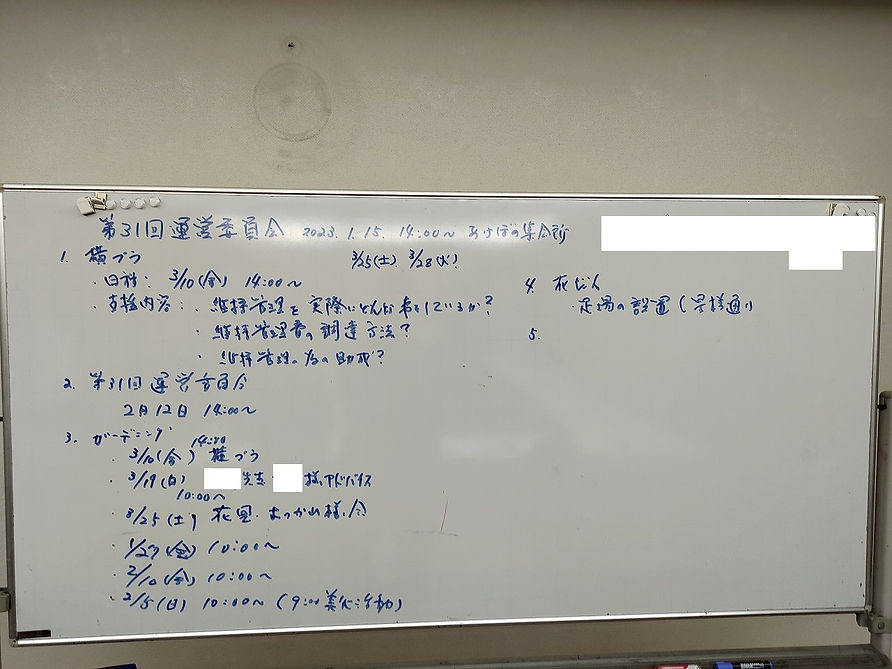 第31回運営委員会 2023.1.15. 14:00～ あけぼの集会所
3/25(土). 3/28(火)?
1. 横プラ
・日程: 3/10(金) 14:00～
・支援内容: ・維持管理を実際にどんな事をしているか?
・維持管理費の調達方法?
・維持管理の為の助成?
2. 第31回運営委員会
2月12日 14:00～
3. ガーデニング
14:00
・3/10(金) 横プラ
・3/19(日) 先生 様アドバイス
10:00～
・3/25(土) 花里
・1/27(金) 10:00～
・2/10(金) 10:00～
・2/5(日) 10:00～ (9:00 美化活動)
4. 花だん
・足場の設置
5.